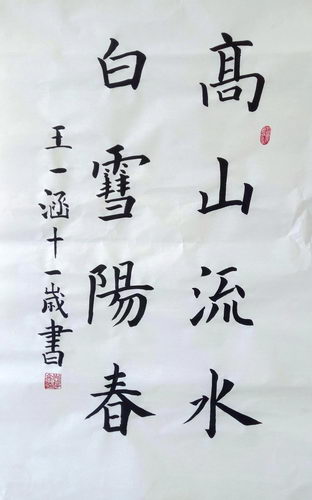 髙山流水
白雪陽春
王一涵十一歲書